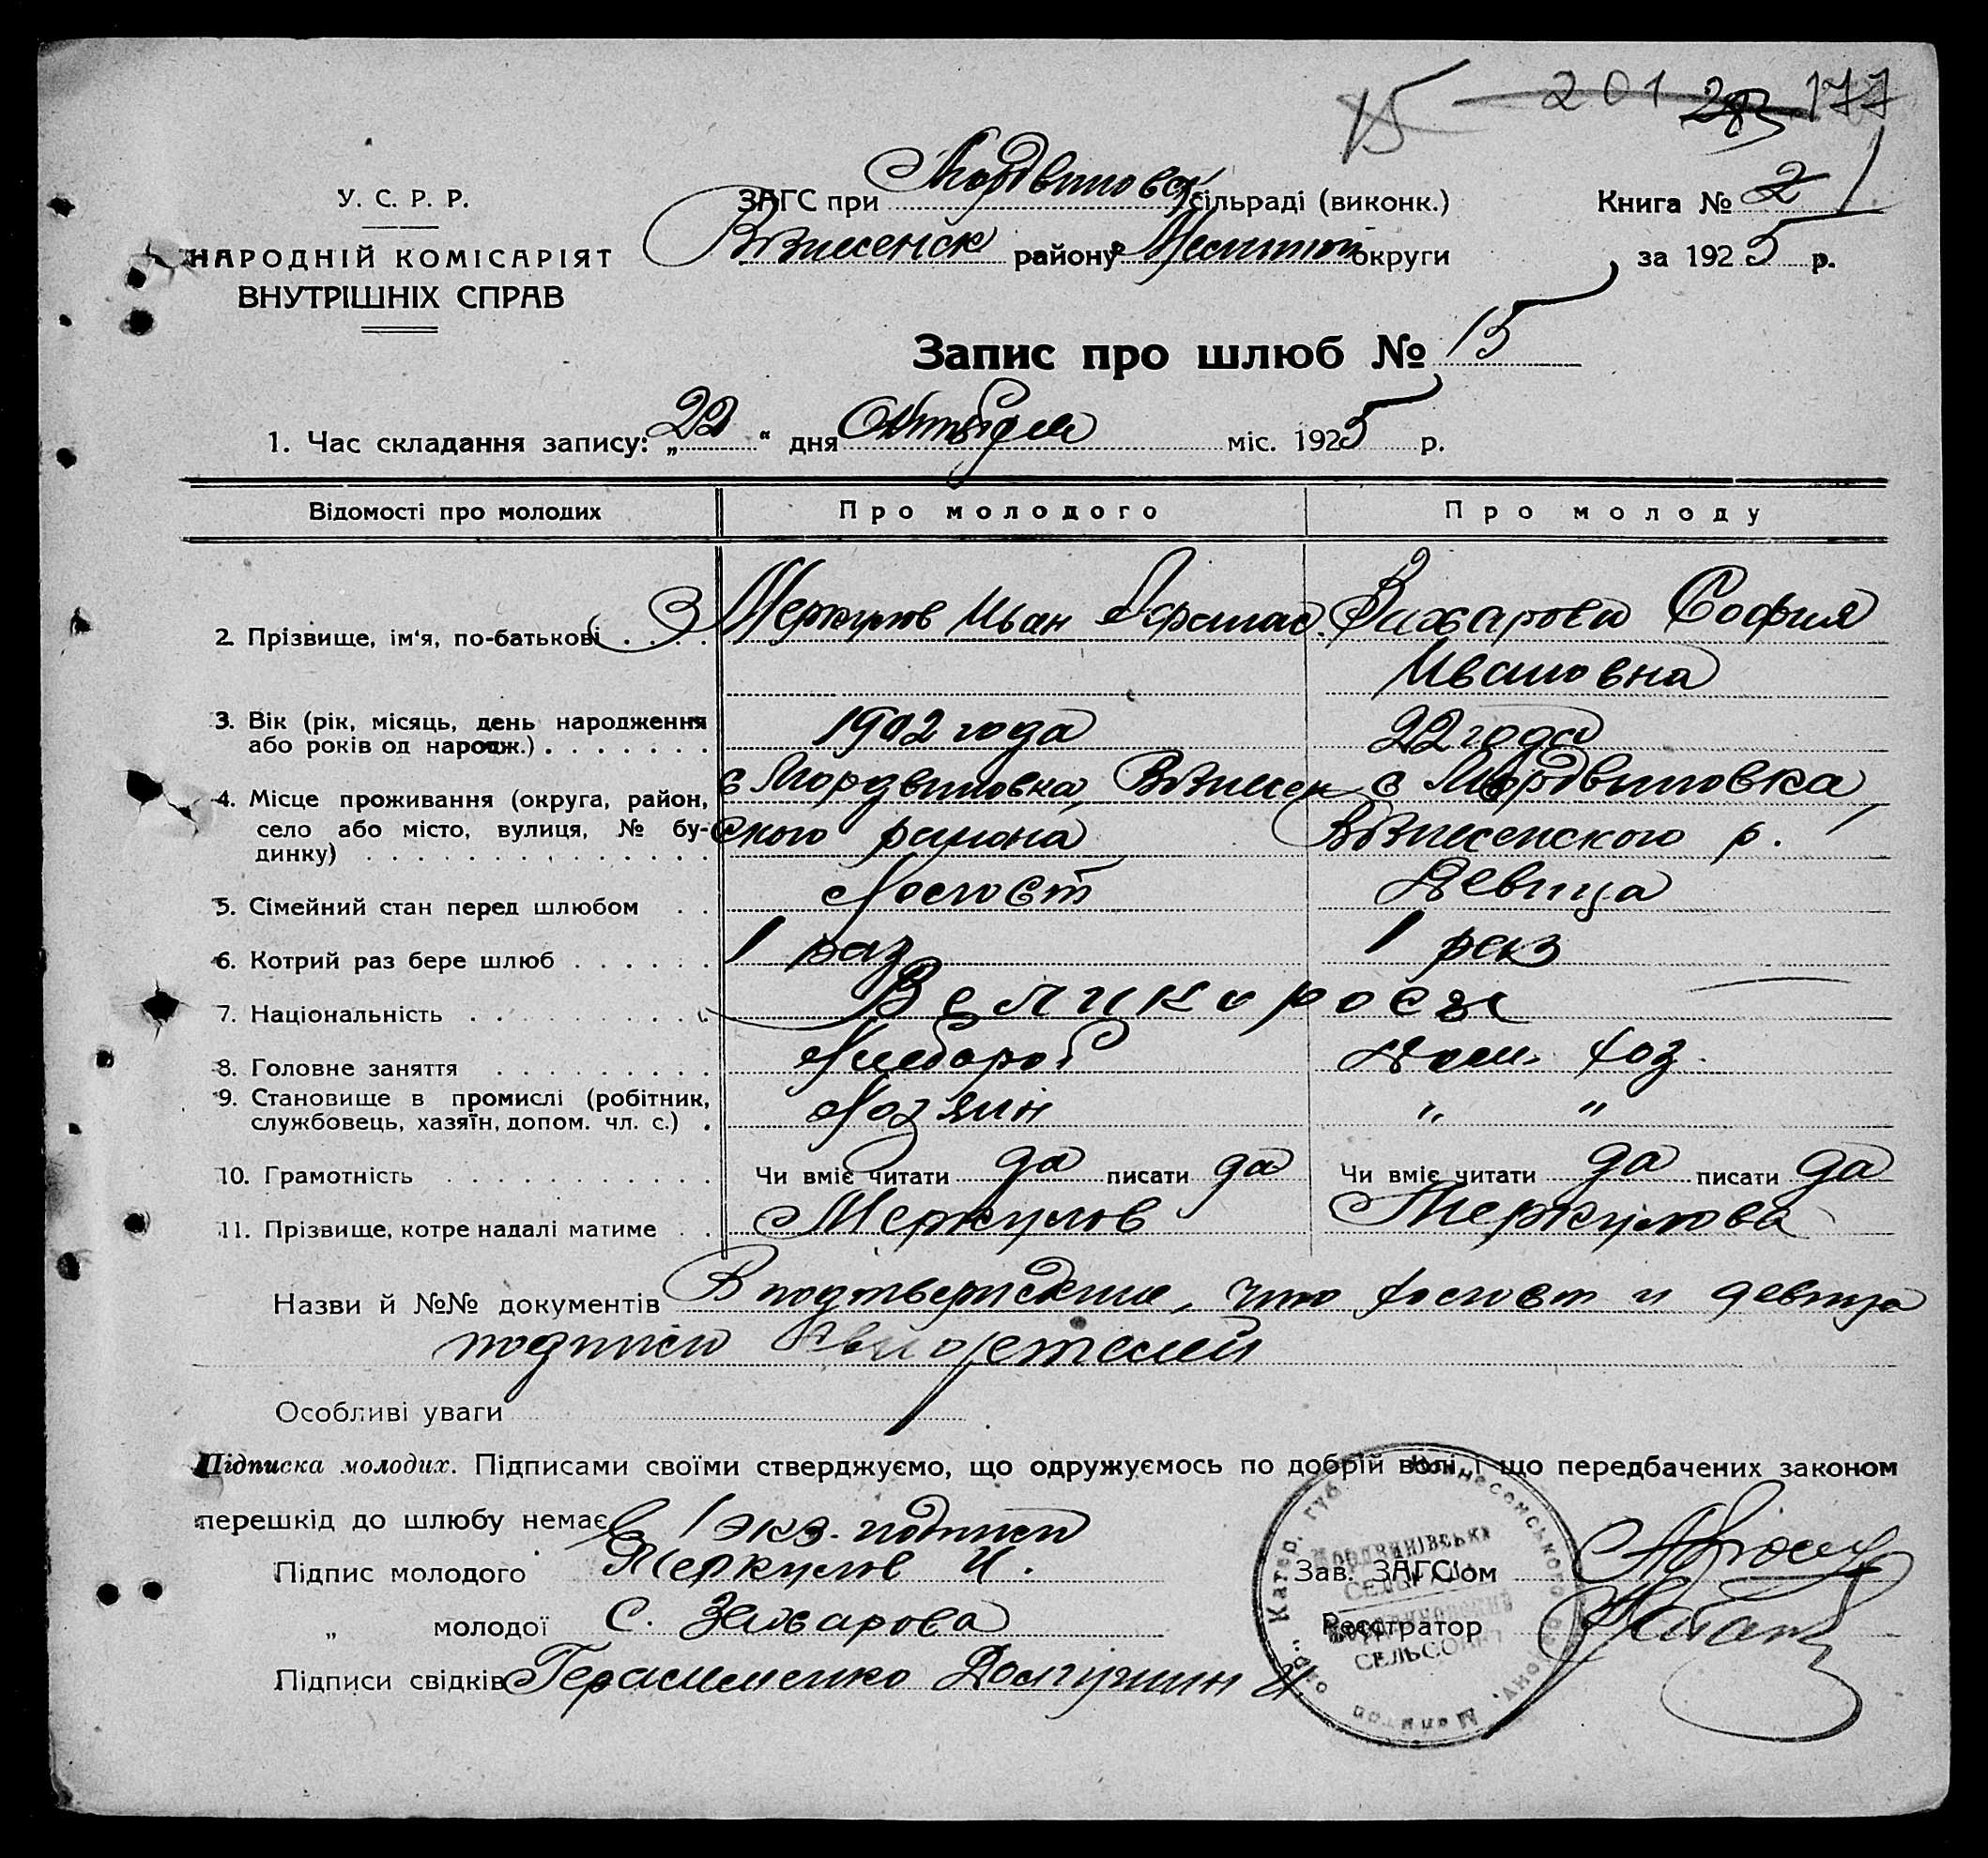 15 201 177
У. С. Р. Р.
НАРОДНІЙ КОМІСАРІЯТ
ВНУТРІШНІХ СПРАВ
ЗАГС при Мордвиновск сільраді (виконк.)
Вознесенск району Мелитоп округи
Книга № 2 1
за 1925 р.
Запис про шлюб № 15
1. Час складання запису: „22" дня Октября міс. 1925 р.
Відомості про молодих Про молодого Про молоду
2. Прізвище, ім'я, по-батькові Меркулов Иван Афанас. Захарова София
Ивановна
3. Вік (рік, місяць, день народження
або років од народж.) 1902 года 22 года
4. Місце проживання (округа, район, с Мордвиновка, Вознесен с Мордвиновка,
село або місто, вулиця, № бу- ского района Вознесенского р.
динку)
5. Сімейний стан перед шлюбом Холост Девица
6. Котрий раз бере шлюб 1 раз 1 раз
7. Національність Великороссы
8. Головне заняття Хлебороб Дом. хоз.
9. Становище в промислі (робітник,
службовець, хазяїн, допом. чл. с.) Хозяин " "
10. Грамотність Чи вміє читати да писати да Чи вміє читати да писати да
11. Прізвище, котре надалі матиме Меркулов Меркулова
Назви й №№ документів В подтверждение, что холост и девица
подписи свидетелей
Особливі уваги
Підписка молодих. Підписами своїми стверджуємо, що одружуємось по добрій волі, і що передбачених законом
перешкід до шлюбу немає В 1 экз. подписи
Підпис молодого Меркулов И.
„ молодої С. Захарова
Підписи свідків Герасименко Долгушин И
Зав. ЗАГС'ом
Реєстратор
Катер. губ. Вознесенського району, Мелитоп окр.
Мордвинівська
СЕЛЬРАДА
Мордвиновский
СЕЛЬСОВЕТ